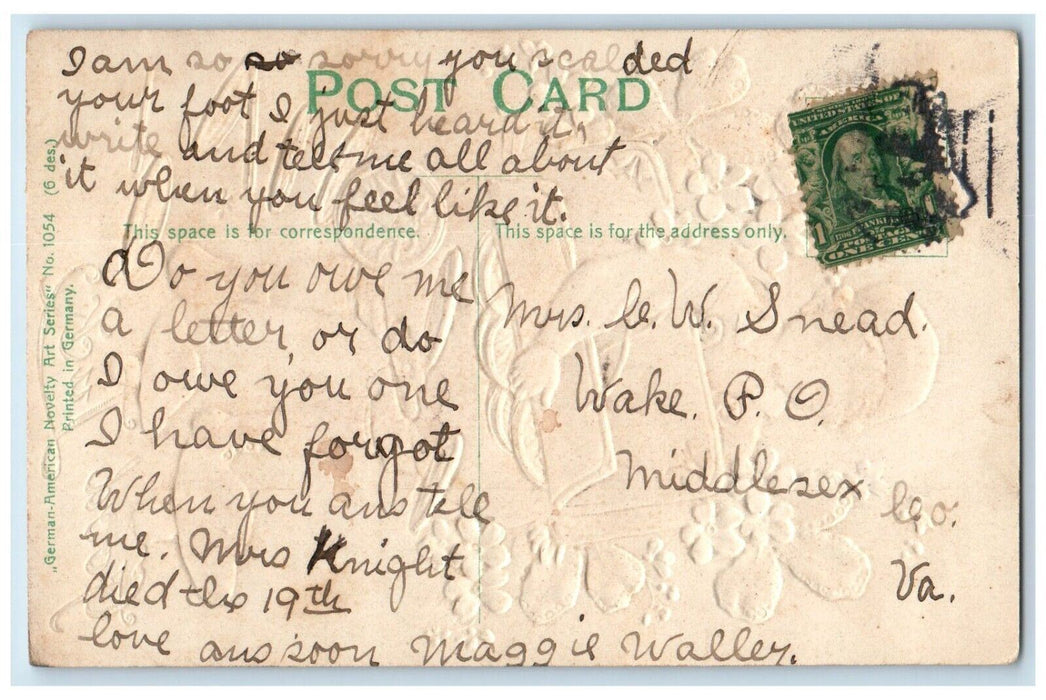 I am so so sorry you scalded
POST CARD
your foot I just heard it,
write and tell me all about
it when you feel like it.
This space is for correspondence.
This space is for the address only.
Do you owe me
a letter, or do
I owe you one
I have forgot
When you ans tele
me. Mrs Knight
died the 19th
love ans soon Maggie Waller.
Mrs. C. W. Snead.
Wake. P. O.
Middlesex Co.
Va.
„German-American Novelty Art Series" No. 1054 (6 des.)
Printed in Germany.
UNITED STATES OF
AMERICA
FRANKLIN
1 POSTAGE 1
ONE CENT